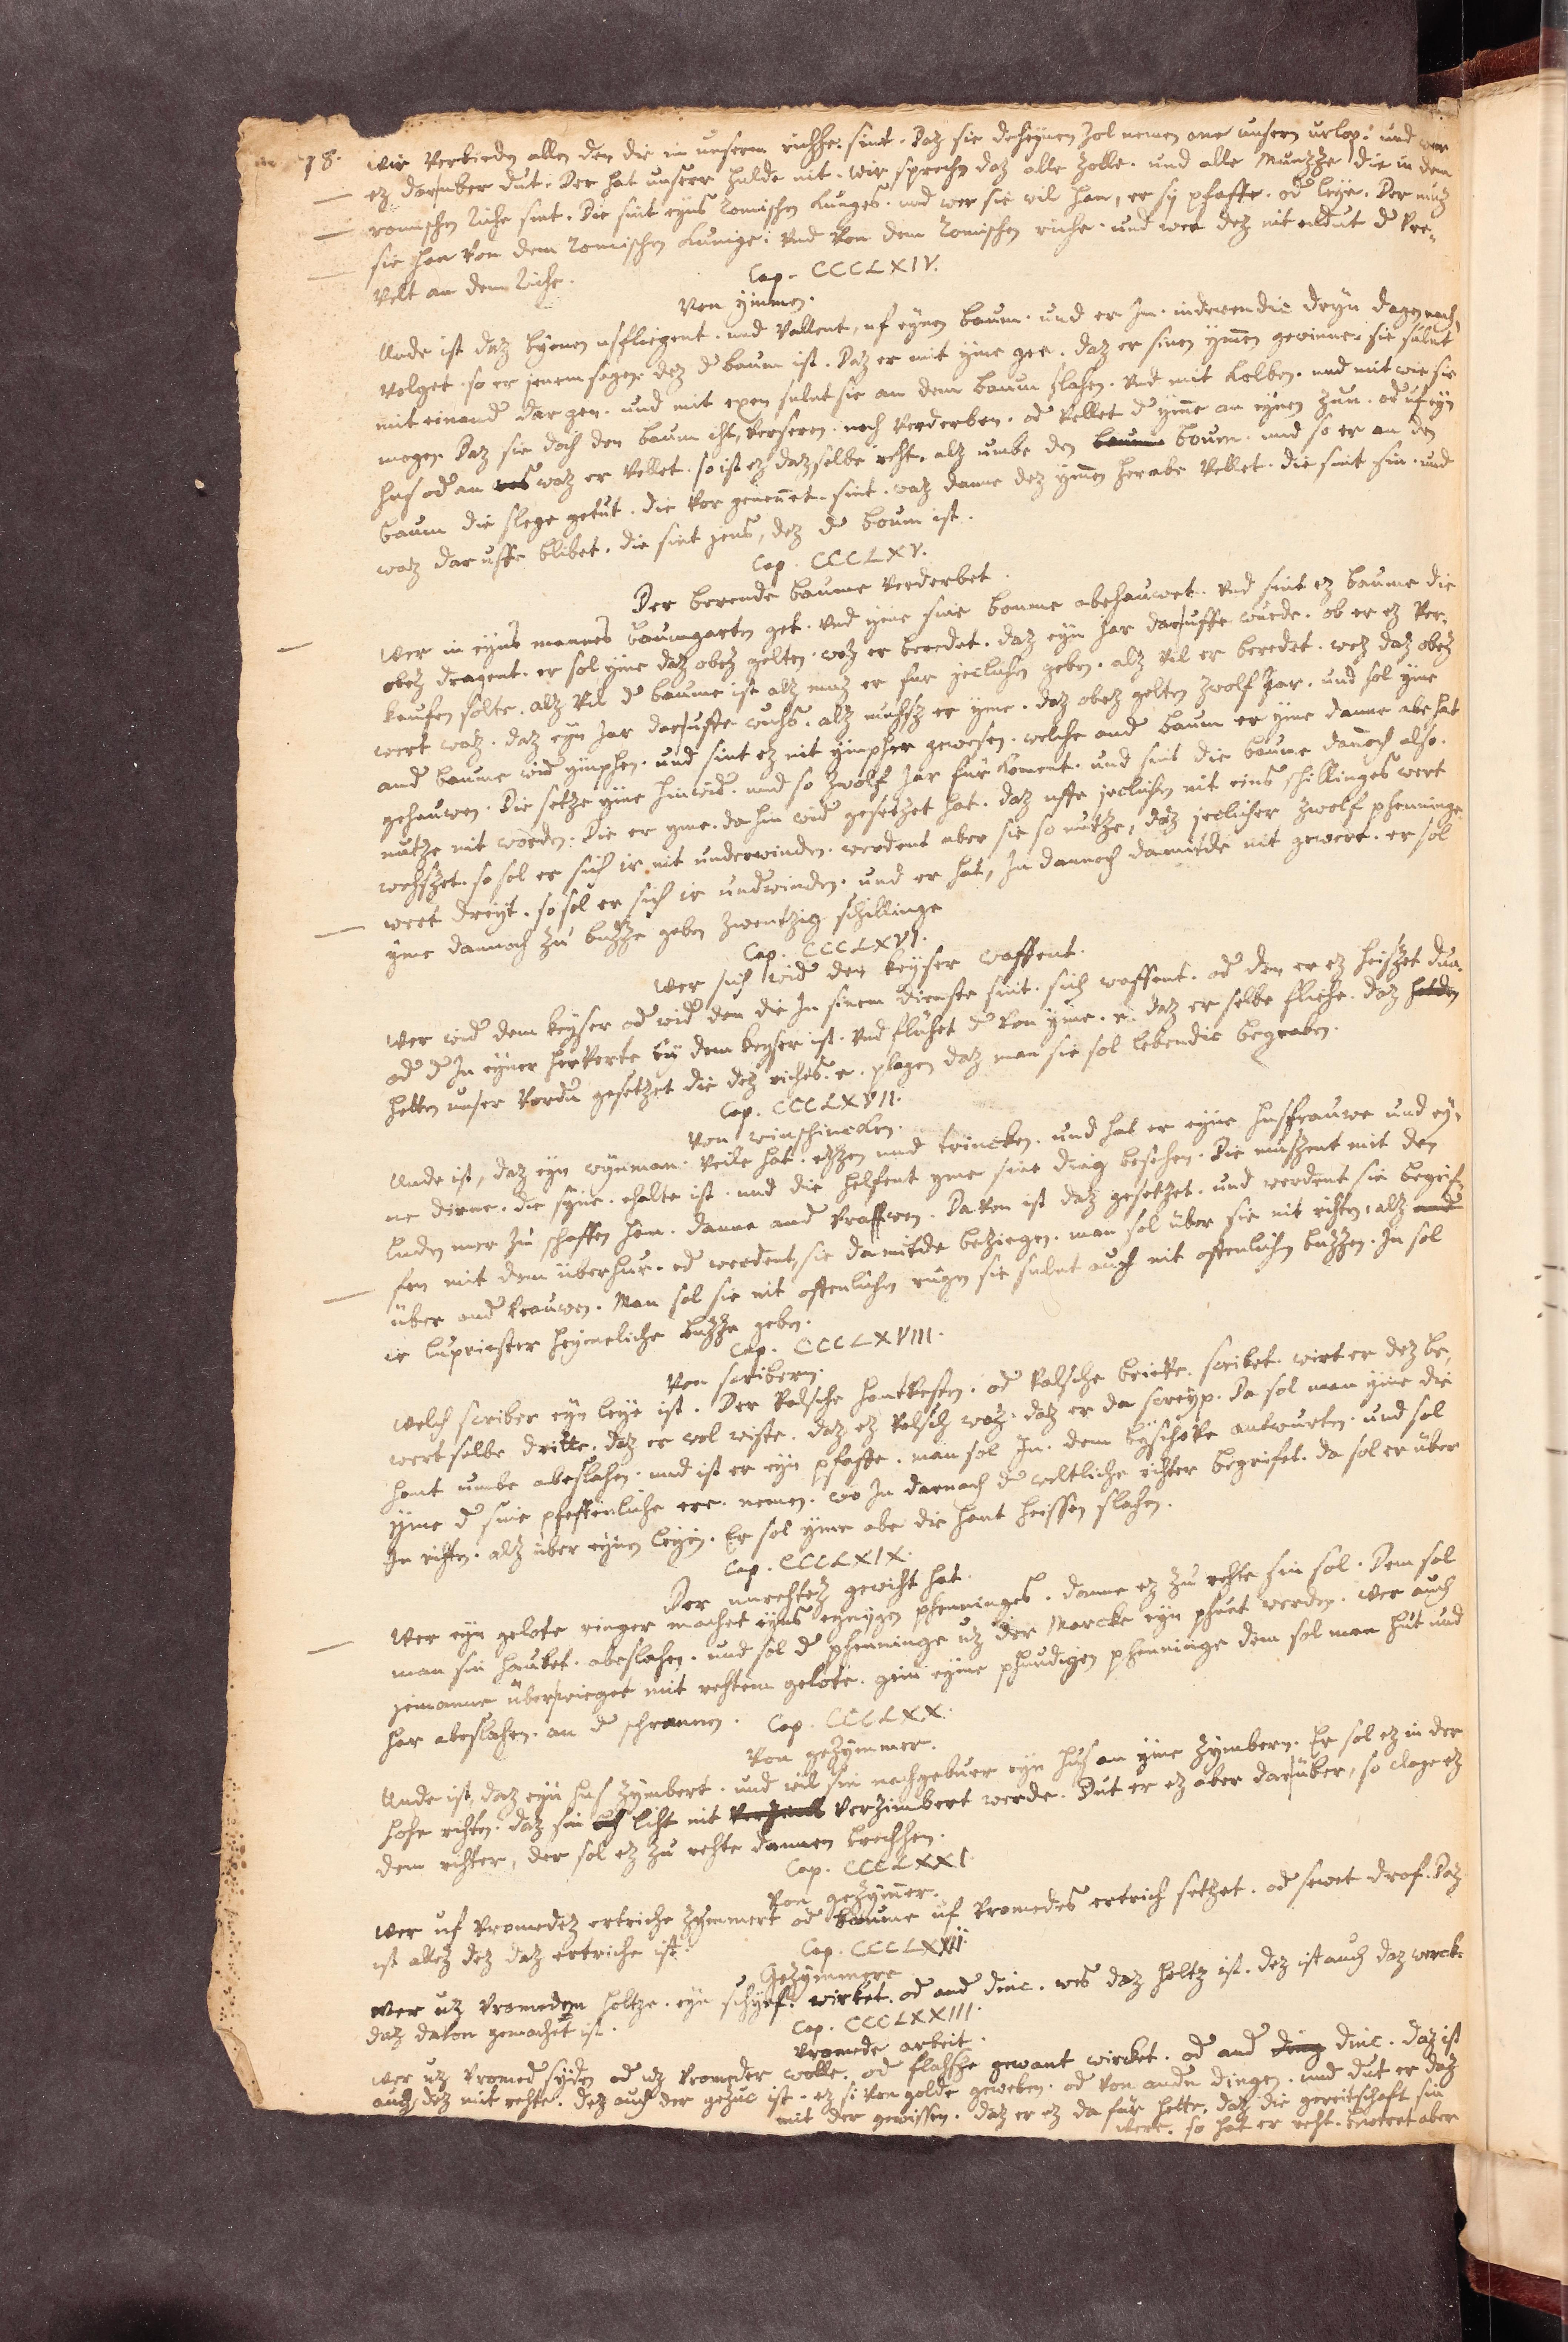 78. wir verbieden allen den die in unserm richhe. sint. Daz sie deheynen zol nemen one unsern urlop: und wer
ez daruber dut. Der hat unserr hulde nit. wir sprechen daz alle zolle. und alle Muntzze die in dem
romischen riche sint. Die sint eyns romischen kunges. und wer sie wil han, er sy pfaffe. od leye. Der muz
sie han von dem romischen kunige: und von dem romischen riche. und wer dez nit endut d vre-
velt an dem riche.
Cap. CCCLXIV.
Von ymmen.
Unde ist daz byenen usfliegent. und vallent, uf eynen baum. und er in. indewendic dryn dagen nach
volget. so er jenem sagen. dez d baum ist. Daz er mit yme gee. daz er sinen ymen gewinne. sie sulnt
mit einand dar gen. und mit exen sulnt sie an dem baum slahen. und mit kolben. und mit wie sie
mogen. Daz sie doch den baum iht, verseren. noch verderben. od vellet d ymme an eynen zun. od uf eyn
hus od an waz er vellet. so ist ez daz selbe reht. alz umbe den boum. und so er an den
baum die slege getut. die vor genennet. sint. waz danne dez ymen herabe vellet. die sint sin. und
waz dar uffe blibet. die sint jens, dez d boum ist.
Cap. CCCLXV.
Der berende baume verderbet.
Wer in eyns mannes baumgarten get. und yme sine boume abehauwet. und sint ez baume die
obez dragent. er sol yme daz obez gelten. wez er beredet. daz eyn jar daruffe wurde. ob er ez ver-
kaufen solte. alz vil d baume ist alz muz er fur jeclichen geben. alz vil er beredet. wez daz obez
wert waz. daz eyn jar daruffe wuhs. alz muhsz er yme. daz obez gelten zwolf jar. und sol yme
and baume wid ymphen. und sint ez nit ympher gewesen. welche and baum er yme danne abe hat
gehauwen. Die setze yme hinwid. und so zwolf jar fur koment. und sint die baume dannoch also.
nutze nit worden. Die er yme. da hin wid gesetzet hat. daz uffe jeclichen nit eins schillinges wert
wehszet. so sol er sich ir nit underwinden. werdent aber sie so nutze, daz jeclicher zwolf phenninge
wert dreyt. so sol er sich ir undwinden. und er hat, in dannoch damitde nit gewert. er sol
yme dannoch zu buzze geben zwentzig schillinge
Cap. CCCLXVI.
Wer sich wid den keyser waffent.
Wer wid dem keyser od wid den die in sinem dienste sint. sich waffent. od den er ez heiszet dun.
od d in eyner herverte by dem keyser ist. und fluhet d von yme. e. daz er selbe fliehe. daz
hetten unser vordn gesetzet die dez riches. e. plagen daz man sie sol lebendic begraben.
Cap. CCCLXVII.
Von winschincken.
Unde ist, daz eyn wynman. veile hat. ezzen und trincken. und hat er eyne husfrauwe und ey-
ne dirne. die syne. ehalte ist. und die helfent yme sine ding besehen. Die muszent mit den
luden mer zu schaffen han. danne and vrauwen. Da von ist daz gesetzet. und werdent sie begrif-
fen mit dem uberhur. od werdent, sie damitde bezigen. man sol über sie nit rihten. alz
über and vrauwen. Man sol sie nit offenlichen rugen sie sulnt auch nit offenlichen buzzen. in sol
ir lupriester heymeliche buzze geben.
Cap. CCCLXVIII.
Von scribern.
Welch scriber eyn leye ist. Der valsche hantvesten. od valsche brieve. scribet. wirt er dez be-
wert selbe dritte. daz er wol wiste. daz ez valsch waz. daz er da screyp. Da sol man yme die
hant umbe abeslahen. und ist er eyn pfaffe. man sol in. dem byschove antwurten. und sol
yme d sine pfeffinliche ere. nemen. wo in darnach d weltliche rihter begrifet. da sol er über
in rihten. alz über eynen leyen. Er sol yme abe die hant heissen slahen.
Cap. CCCLXIX.
Der unrehtez gewiht hat.
Wer eyn gelote ringer machet eyns eynygen phenninges. danne ez zu rehte sin sol. Dem sol
man sin haubet. abeslahen. und sol d phenninge uz der Marcke eyn phunt werden. wer auch
jemanne überwieget mit rehtem gelote. gein eyme phundigen phenninge dem sol man hut und
har abeslahen. an d schrannen. Cap. CCCLXX.
Von gezymmer.
Unde ist, daz eyn hus zymbert. und wil sin nachgebuer eyn hus an yme zymbern. Er sol ez in der
hohe rihten. daz sin liht nit verzimbert werde. Dut er ez aber darüber, so clage ez
dem rihter, der sol ez zu rehte dannen brechhen.
Cap. CCCLXXI.
Von gezymer.
Wer uf vromedez ertriche zymmert od baume uf vromedes ertrich setzet. od sewet drof. Daz
ist allez dez daz ertriche ist.
Cap. CCCLXXII.
Gezymmere
Wer uz vromedem holtze. eyn schyf. wirket. od and dinc. wes daz holtz ist. dez ist auch daz werck.
daz davon gemachet ist.
Cap. CCCLXXIII.
vromede arbeit.
Wer uz vromed syden od uz vromeder wolle. od flahsze gewant wircket. od and dinc. daz ist
auch dez mit rehte. dez auch der gezuc ist. ez si von golde geweben. od von andn dingen. und dut er daz
mit der gewissen. daz er ez da für hette. daz die gereitschaft sin
were. so hat er reht. beweret aber